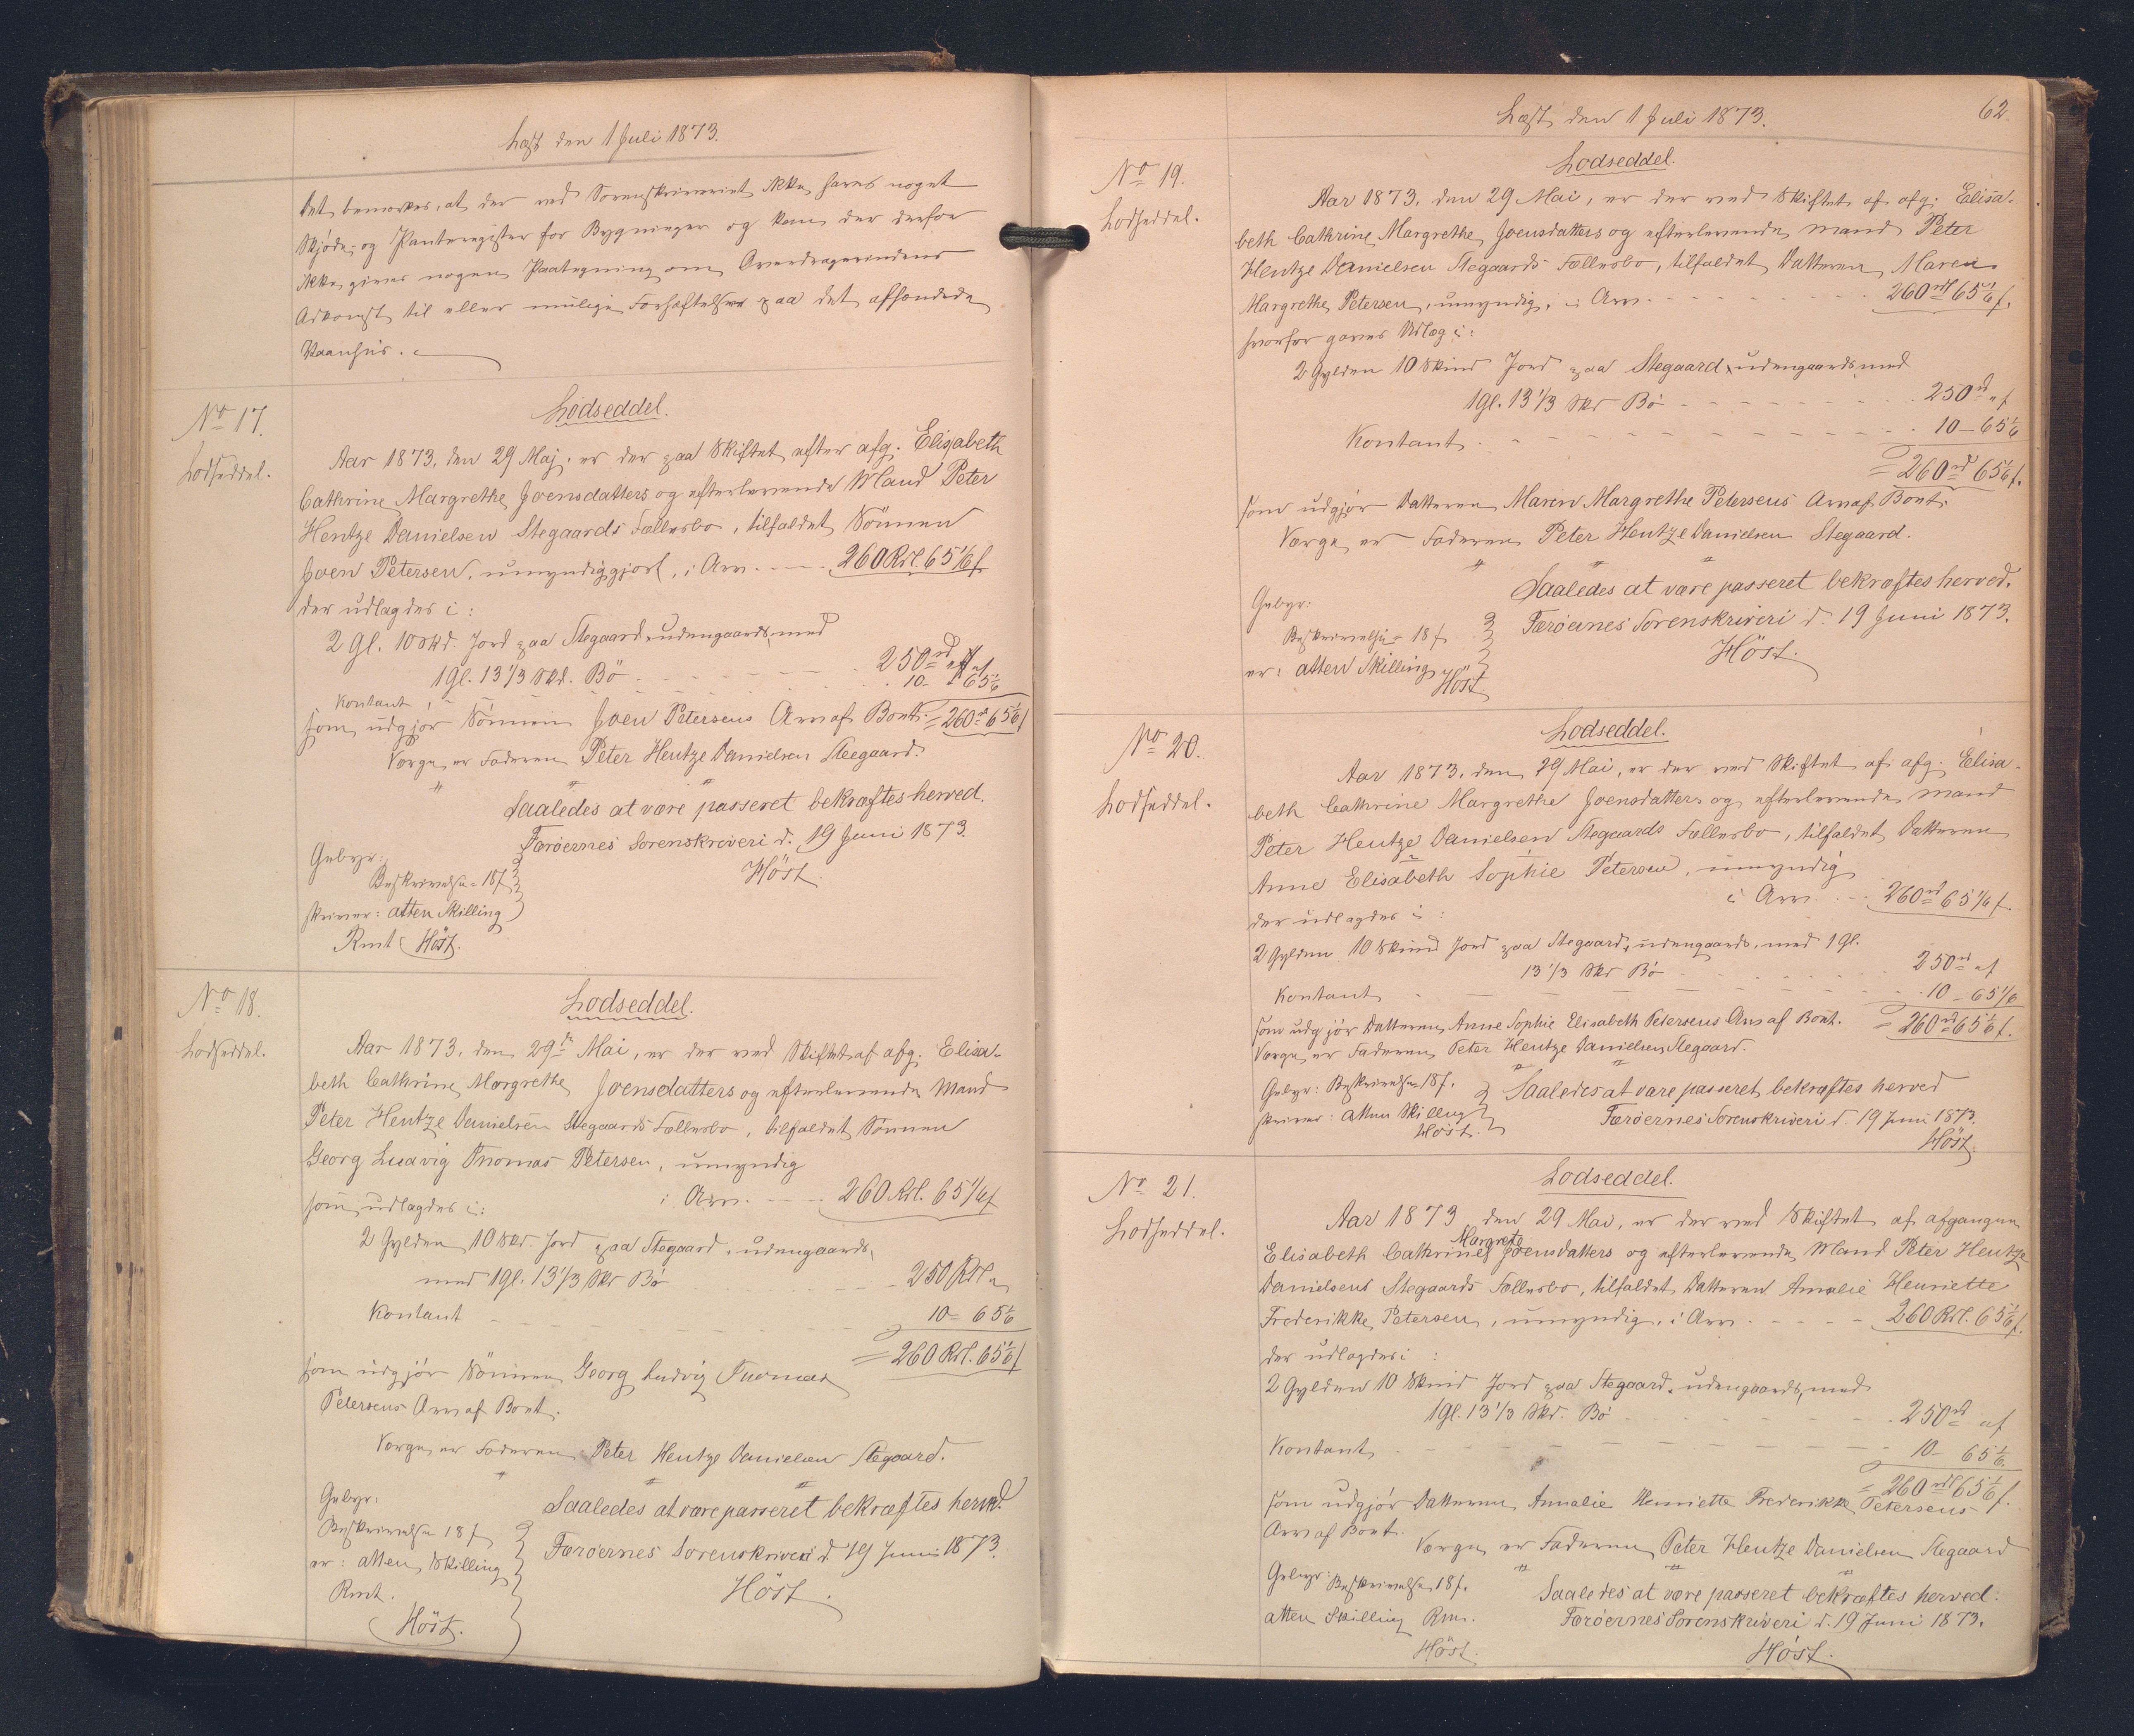 Læst den 1 Juli 1873.
Det bemærkes, at der ved Sorenskriveriet ikke haves noget
Skjøde- og Panteregister for Bygninger og kan der derfor
ikke gives nogen Paategning om Overdragerindens
Adkomst til eller mulige Forhæftelser paa det afhændede
Vaanhus.
No 17.
Lodseddel.
Lodseddel.
Aar 1873, den 29 Maj, er der paa Skiftet efter afg. Elisabeth
Cathrine Margrethe Joensdatters og efterlevende Mand Peter
Hentze Danielsen Stegaards Fællesbo, tilfaldet Sønnen
Joen Petersen, umyndiggjort, i Arv. - - - 260 Rdl. 65 1/6 f
der udlagdes i:
2 Gl. 10 Skd. Jord paa Stegaard, udengaards, med
1 Gl. 13 1/3 Skd. Bö - - - 250 rd " f
Kontant - - - 10 - 65 1/6
som udgjør Sønnen Joen Petersens Arv af Boet. = 260 rd 65 1/6 f
Værge er Faderen Peter Hentze Danielsen Steegaard.
Saaledes at være passeret bekræftes herved.
Færøernes Sorenskriveri d. 19 Juni 1873.
Höst.
Gebyr:
Beskrivelse = 18 f
skriver: atten Skilling
Rmt Höst.
No 18.
Lodseddel.
Lodseddel.
Aar 1873, den 29de Mai, er der ved Skiftet af afg. Elisa-
beth Cathrine Margrethe Joensdatters og efterlevende Mand
Peter Hentze Danielsen Stegaards Fællesbo, tilfaldet Sønnen
Georg Ludvig Thomas Petersen, umyndig
i Arv. - - - 260 Rdl. 65 1/6 f
som udlagdes i:
2 Gylden 10 Skd. Jord paa Stegaard, udengaards,
med 1 Gl. 13 1/3 Skd Bö - - - 250 Rdl "
Kontant - - - 10 = 65 1/6
= 260 Rdl. 65 1/6 f
som udgjør Sønnen Georg Ludvig Thomas
Petersens Arv af Boet.
Værge er Faderen Peter Hentze Danielsen Stegaard.
Saaledes at være passeret bekræftes herved.
Færøernes Sorenskriveri d 19 Juni 1873.
Höst.
Gebyr:
Beskrivelse 18 f
er: atten Skilling
Rmt.
Höst.
62
Læst den 1 Juli 1873.
No 19.
Lodseddel.
Lodseddel.
Aar 1873, den 29 Mai, er der ved Skiftet af afg. Elisa-
beth Cathrine Margrethe Joensdatters og efterlevende Mand Peter
Hentze Danielsen Stegaards Fællesbo, tilfaldet Datteren Maren
Margrethe Petersen, umyndig, i Arv. - - - 260 rdl 65 1/6 f.
hvorfor gives Udlæg i:
2 Gylden 10 Skind Jord paa Stegaard, udengaards, med
1 Gl. 13 1/3 Skd Bö - - - 250 rd " f
Kontant - - - 10 - 65 1/6
= 260 rd 65 1/6 f.
som udgjør Datteren Maren Margrethe Petersens Arv af Boet.
Værge er Faderen Peter Hentze Danielsen Stegaard.
Saaledes at være passeret bekræftes herved.
Færøernes Sorenskriveri d. 19 Juni 1873.
Höst.
Gebyr:
Beskrivelse = 18 f
er: atten Skilling
Höst
No 20.
Lodseddel.
Lodseddel.
Aar 1873, den 29 Mai, er der ved Skiftet af afg. Elisa-
beth Cathrine Margrethe Joensdatters og efterlevende Mand
Peter Hentze Danielsen Stegaards Fællesbo, tilfaldet Datteren
Anne Elisabeth Sophie Petersen, umyndig
i Arv. - - 260 rd 65 1/6 f.
der udlagdes i:
2 Gylden 10 Skind Jord paa Stegaard, udengaards, med 1 Gl.
13 1/3 Skd Bö - - - 250 rd " f
Kontant - - - 10 - 65 1/6
som udgjør Datteren Anne Sophie Elisabeth Petersens Arv af Boet. = 260 rd 65 1/6 f.
Værge er Faderen Peter Hentze Danielsen Stegaard.
Gebyr: Beskrivelse 18 f.
skriver: atten Skilling
Höst.
Saaledes at være passeret bekræftes herved
Færøernes Sorenskriveri d. 19 Juni 1873.
Höst.
No 21.
Lodseddel.
Lodseddel.
Aar 1873 den 29 Mai, er der ved Skiftet af afgangne
Elisabeth Cathrines Margrete Joensdatters og efterlevende Mand Peter Hentze
Danielsens Stegaards Fællesbo, tilfaldet Datteren Amalie Henriette
Frederikke Petersen, umyndig, i Arv - - - 260 Rdl. 65 1/6 f.
der udlagdes i:
2 Gylden 10 Skind Jord paa Stegaard, udengaards, med
1 Gl. 13 1/3 Skd. Bö - - - 250 rd " f
Kontant - - - 10 - 65 1/6
= 260 rdl 65 1/6 f.
som udgjør Datteren Amalie Henriette Frederikke Petersens
Arv af Boet. Værge er Faderen Peter Hentze Danielsen Stegaard
Gebyr: Beskrivelse 18 f.
atten Skilling Rmt.
Höst.
Saaledes at være passeret bekræftes herved:
Færøernes Sorenskriveri d. 19 Juni 1873.
Höst.